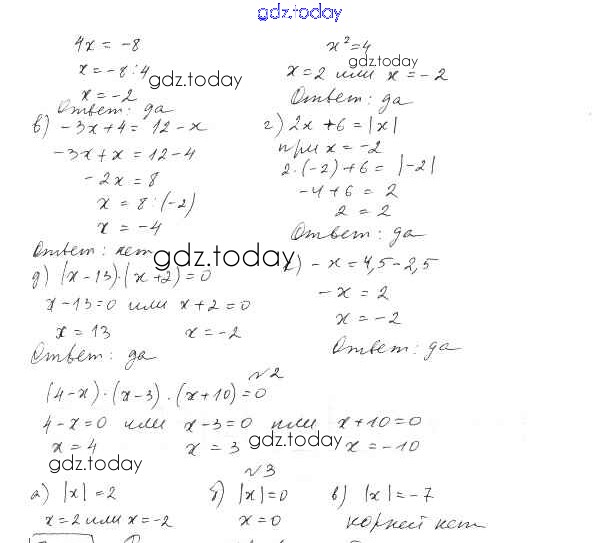 gdz.today
4x = -8
x = -8 : 4
x = -2
Ответ: да
x² = 4
x = 2 или x = -2
gdz.today
gdz.today
Ответ: да
в) -3x + 4 = 12 - x
-3x + x = 12 - 4
-2x = 8
x = 8 : (-2)
x = -4
Ответ: нет
г) 2x + 6 = |x|
при x = -2
2 · (-2) + 6 = |-2|
-4 + 6 = 2
2 = 2
Ответ: да
gdz.today
д) (x - 13) · (x + 2) = 0
x - 13 = 0 или x + 2 = 0
x = 13 x = -2
Ответ: да
) -x = 4,5 - 2,5
-x = 2
x = -2
Ответ: да
№2
(4 - x) · (x - 3) · (x + 10) = 0
4 - x = 0 или x - 3 = 0 или x + 10 = 0
x = 4 x = 3 x = -10
gdz.today
gdz.today
№3
а) |x| = 2 б) |x| = 0 в) |x| = -7
x = 2 или x = -2 x = 0 корней нет